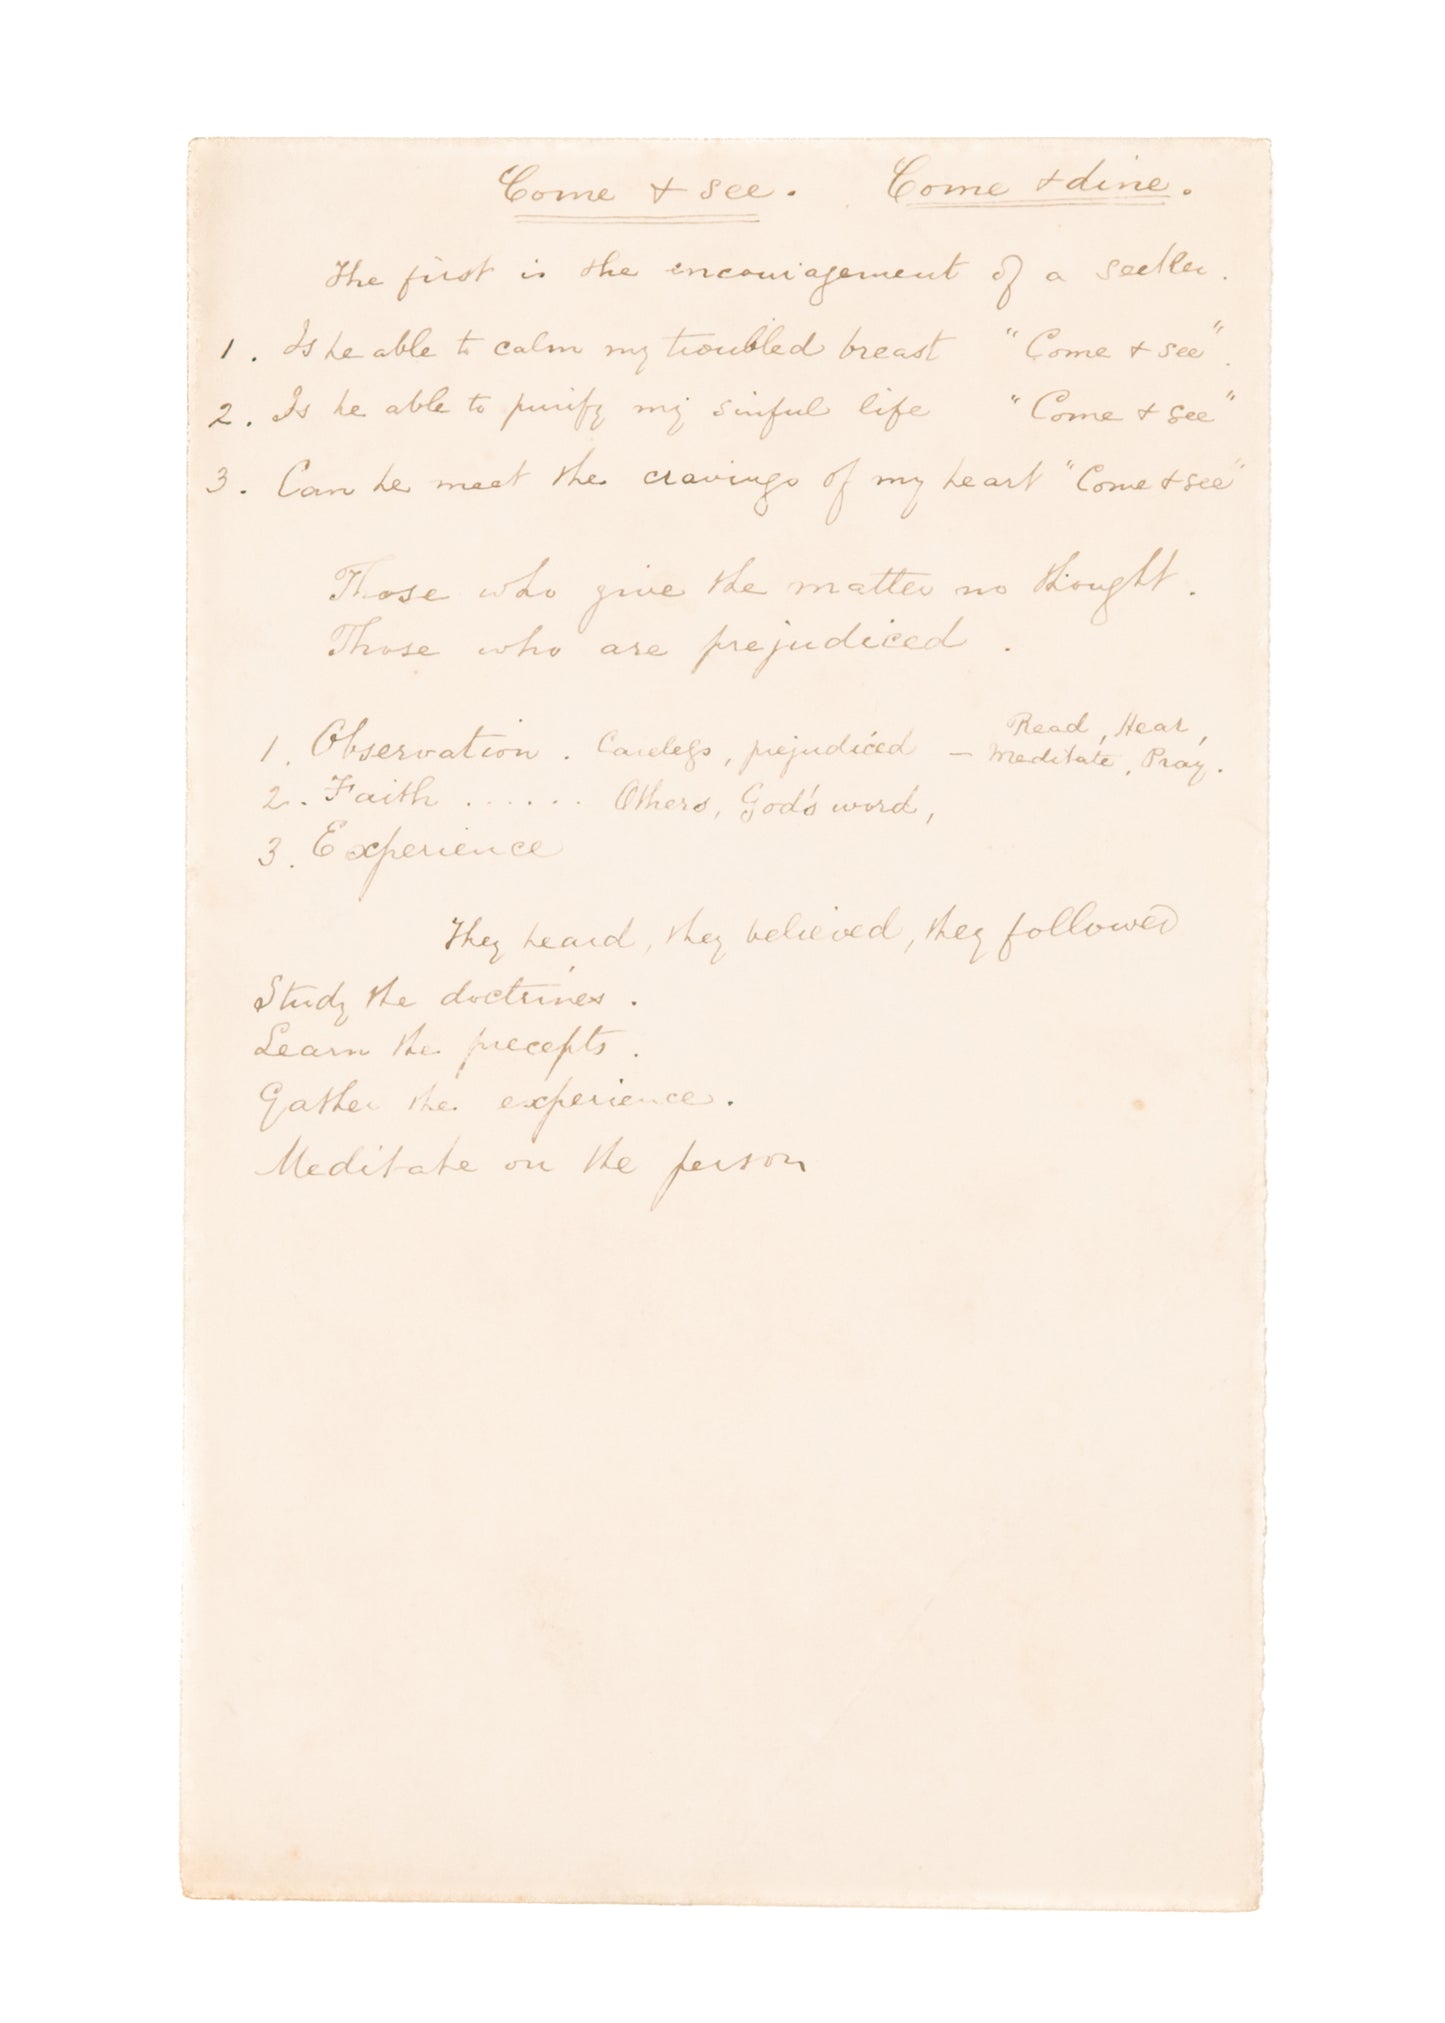 Come & see. Come & dine.
The first is the encouragement of a seeker.
1. Is he able to calm my troubled breast "Come & see".
2. Is he able to purify my sinful life "Come & see"
3. Can he meet the cravings of my heart "Come & see"
Those who give the matter no thought.
Those who are prejudiced.
1. Observation. Careless, prejudiced — Read, Hear,
Meditate, Pray.
2. Faith ...... Others, God's word,
3. Experience
They heard, they believed, they followed
Study the doctrines.
Learn the precepts.
Gather the experience.
Meditate on the person